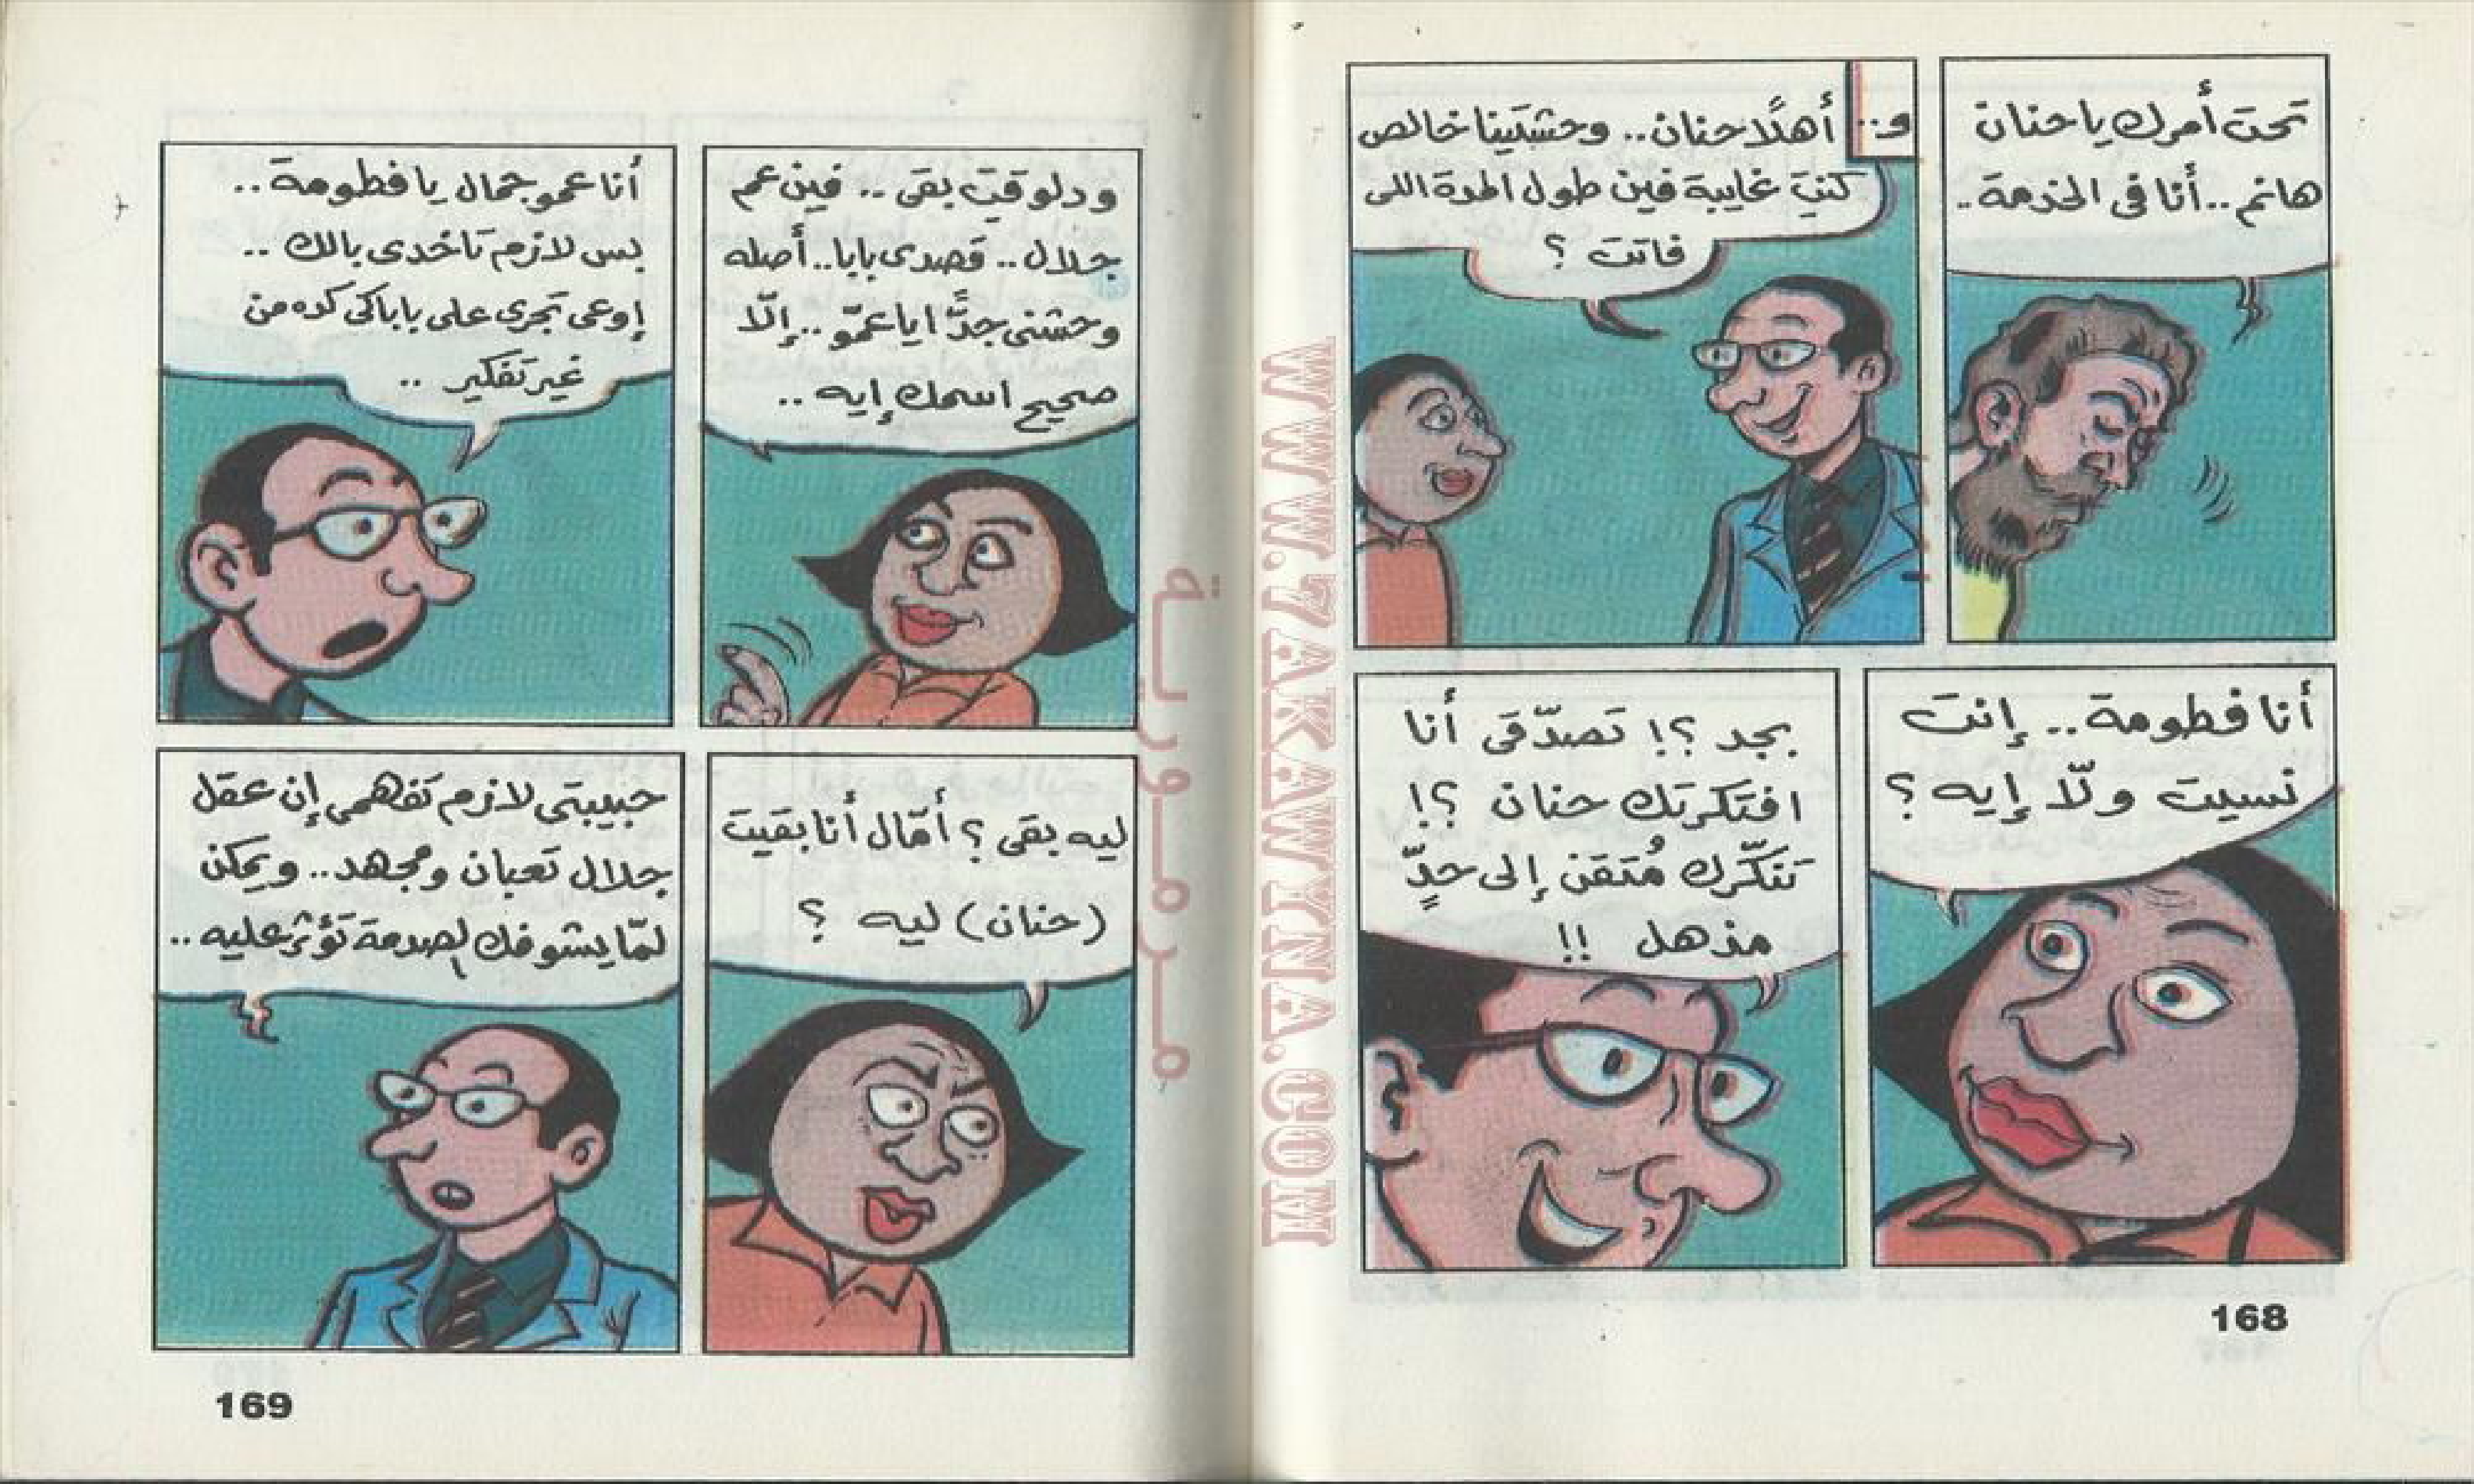 تحت أمرك يا حنان
هانم.. أنا فى الخدمة..
و..
أهلًا حنان.. وحشتينا خالص
كنتِ غايبة فين طول المدة اللى
فاتت ؟
أنا فطومة.. إنت
نسيت ولّا إيه ؟
بجد ؟! تصدّقى أنا
افتكرتك حنان ؟!
تنكّرك مُتقن إلى حدٍّ
مذهل !!
168
WWW.7AKAWINA.COM
مرمورية
ودلوقتِ بقى.. فين عم
جلال.. قصدى بابا.. أصله
وحشنى جدًّا يا عمّو.. إلّا
صحيح اسمك إيه..
أنا عمو جمال يا فطومة..
بس لازم تاخدى بالك..
إوعى تجرى على باباكى كده من
غير تفكير..
ليه بقى ؟ أمّال أنا بقيت
(حنان) ليه ؟
حبيبتى لازم تفهمى إن عقل
جلال تعبان ومجهد.. ويمكن
لمّا يشوفك الصدمة تؤثر عليه..
169